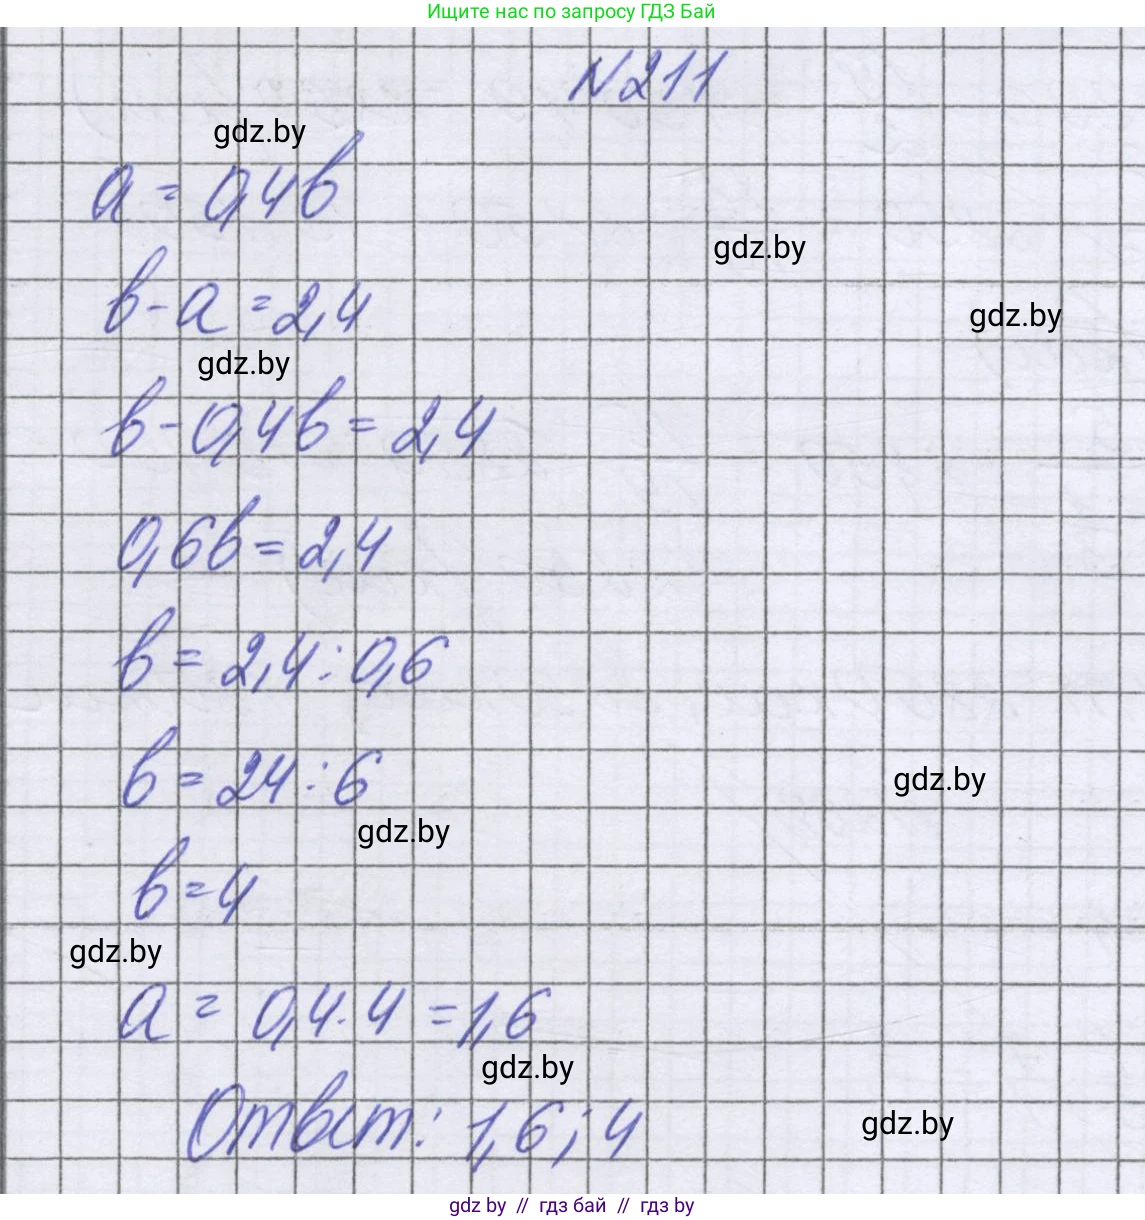 Ищите нас по запросу ГДЗ Бай
N211
gdz.by
a = 0,4b
gdz.by
b - a = 2,4
gdz.by
gdz.by
b - 0,4b = 2,4
0,6b = 2,4
b = 2,4 : 0,6
b = 24 : 6
gdz.by
gdz.by
b = 4
gdz.by
a = 0,4 · 4 = 1,6
gdz.by
Ответ: 1,6; 4
gdz.by
gdz by // гдз бай // гдз by